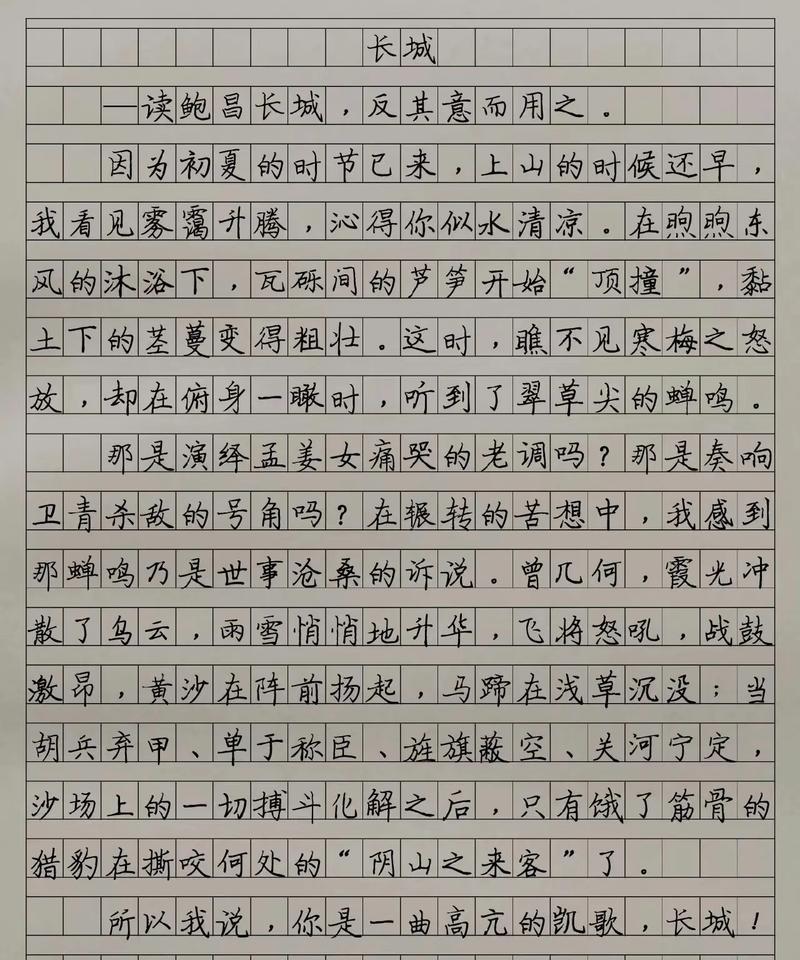 长城
—读鲍昌长城，反其意而用之。
因为初夏的时节已来，上山的时候还早，
我看见雾霭升腾，沁得你似水清凉。在煦煦东
风的沐浴下，瓦砾间的芦笋开始“顶撞”，黏
土下的茎蔓变得粗壮。这时，瞧不见寒梅之怒
放，却在俯身一瞰时，听到了翠草尖的蝉鸣。
那是演绎孟姜女痛哭的老调吗？那是奏响
卫青杀敌的号角吗？在辗转的苦想中，我感到
那蝉鸣乃是世事沧桑的诉说。曾几何，霞光冲
散了乌云，雨雪悄悄地升华，飞将怒吼，战鼓
激昂，黄沙在阵前扬起，马蹄在浅草沉没；当
胡兵弃甲、单于称臣、旌旗蔽空、关河宁定，
沙场上的一切搏斗化解之后，只有饿了筋骨的
猎豹在撕咬何处的“阴山之来客”了。
所以我说，你是一曲高亢的凯歌，长城！